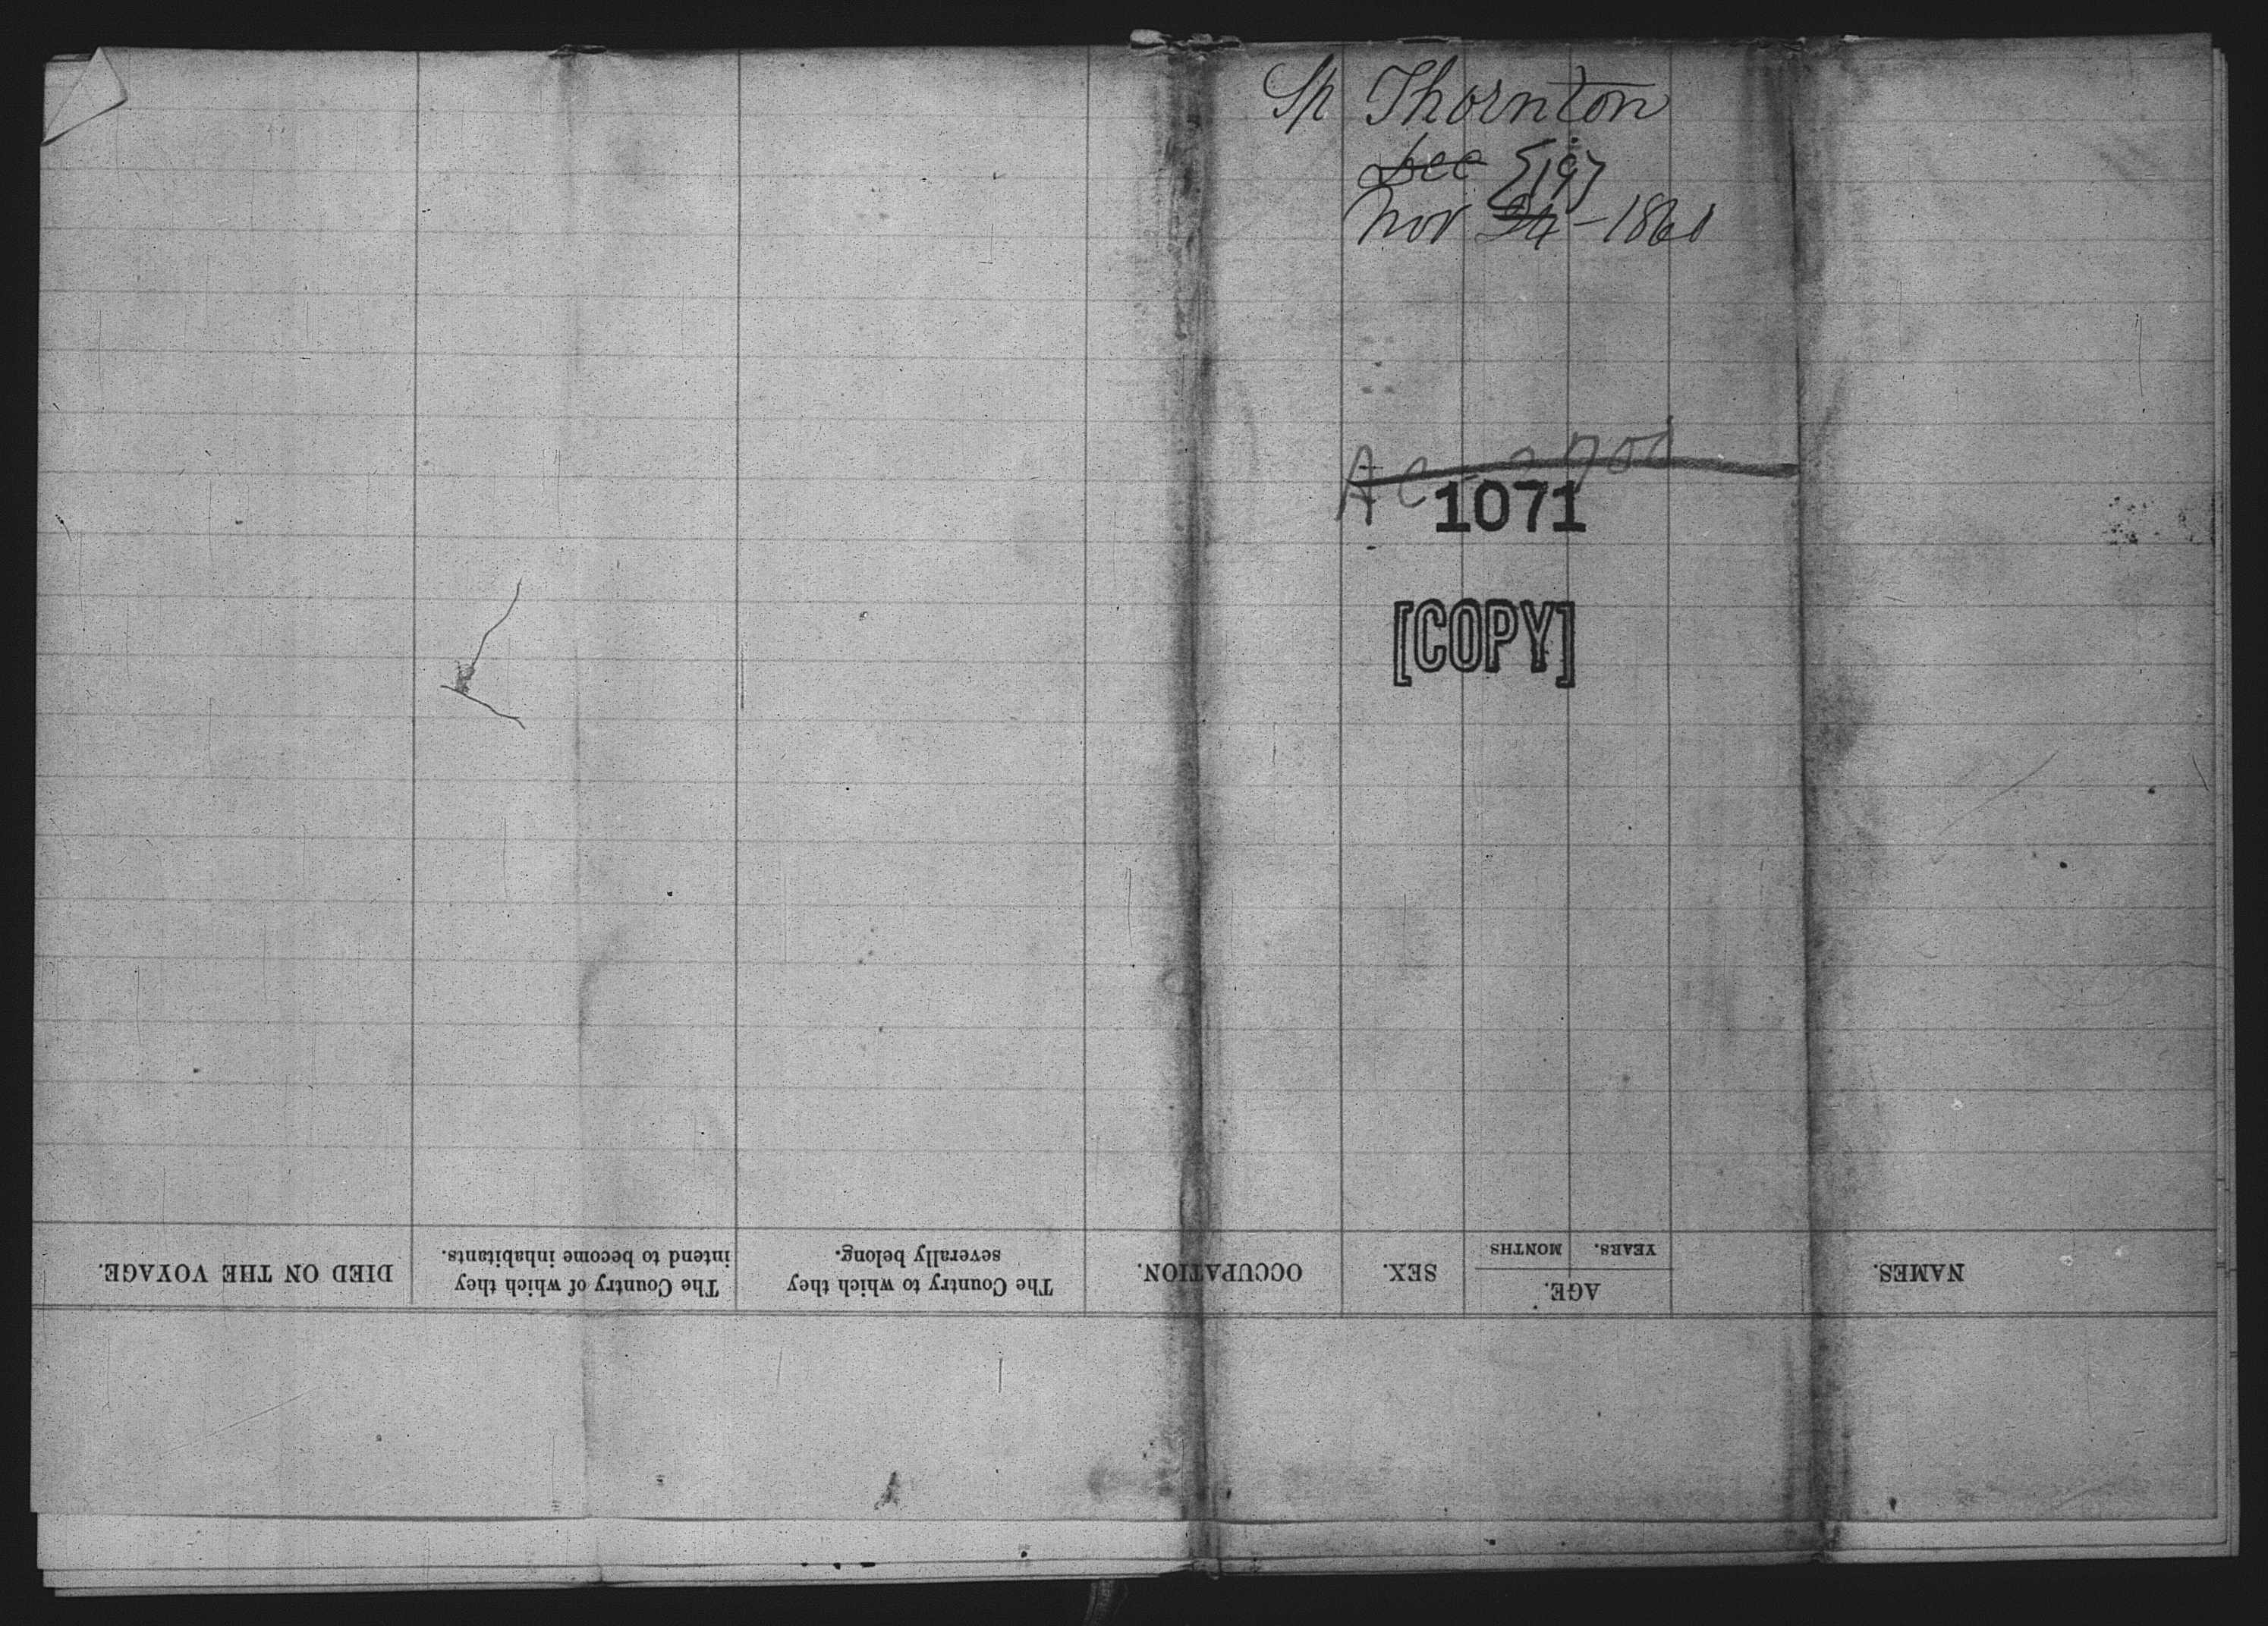 Sp Thornton
Dec
Nov 24 - 1860
1071
[COPY]
NAMES.
AGE.
YEARS.
MONTHS
SEX.
OCCUPATION.
The Country to which they
severally belong.
The Country of which they
intend to become inhabitants.
DIED ON THE VOYAGE.